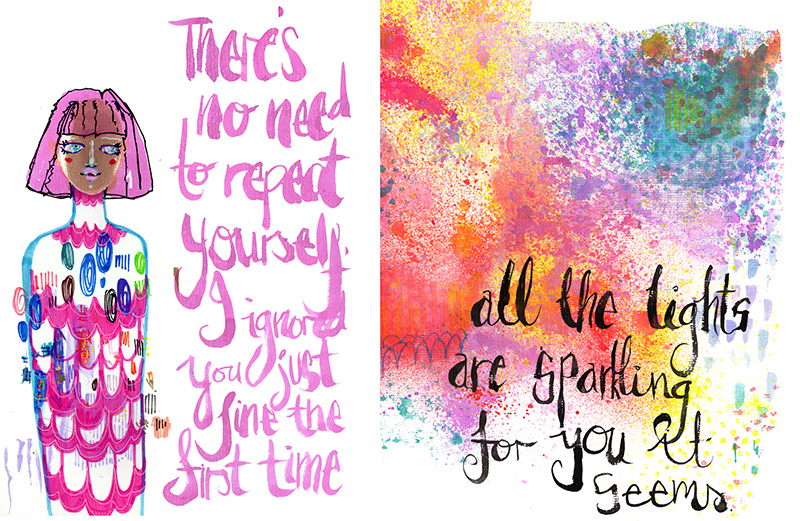 There's
no need
to repeat
yourself.
I ignored
you just
fine the
first time
all the lights
are sparkling
for you it
seems.